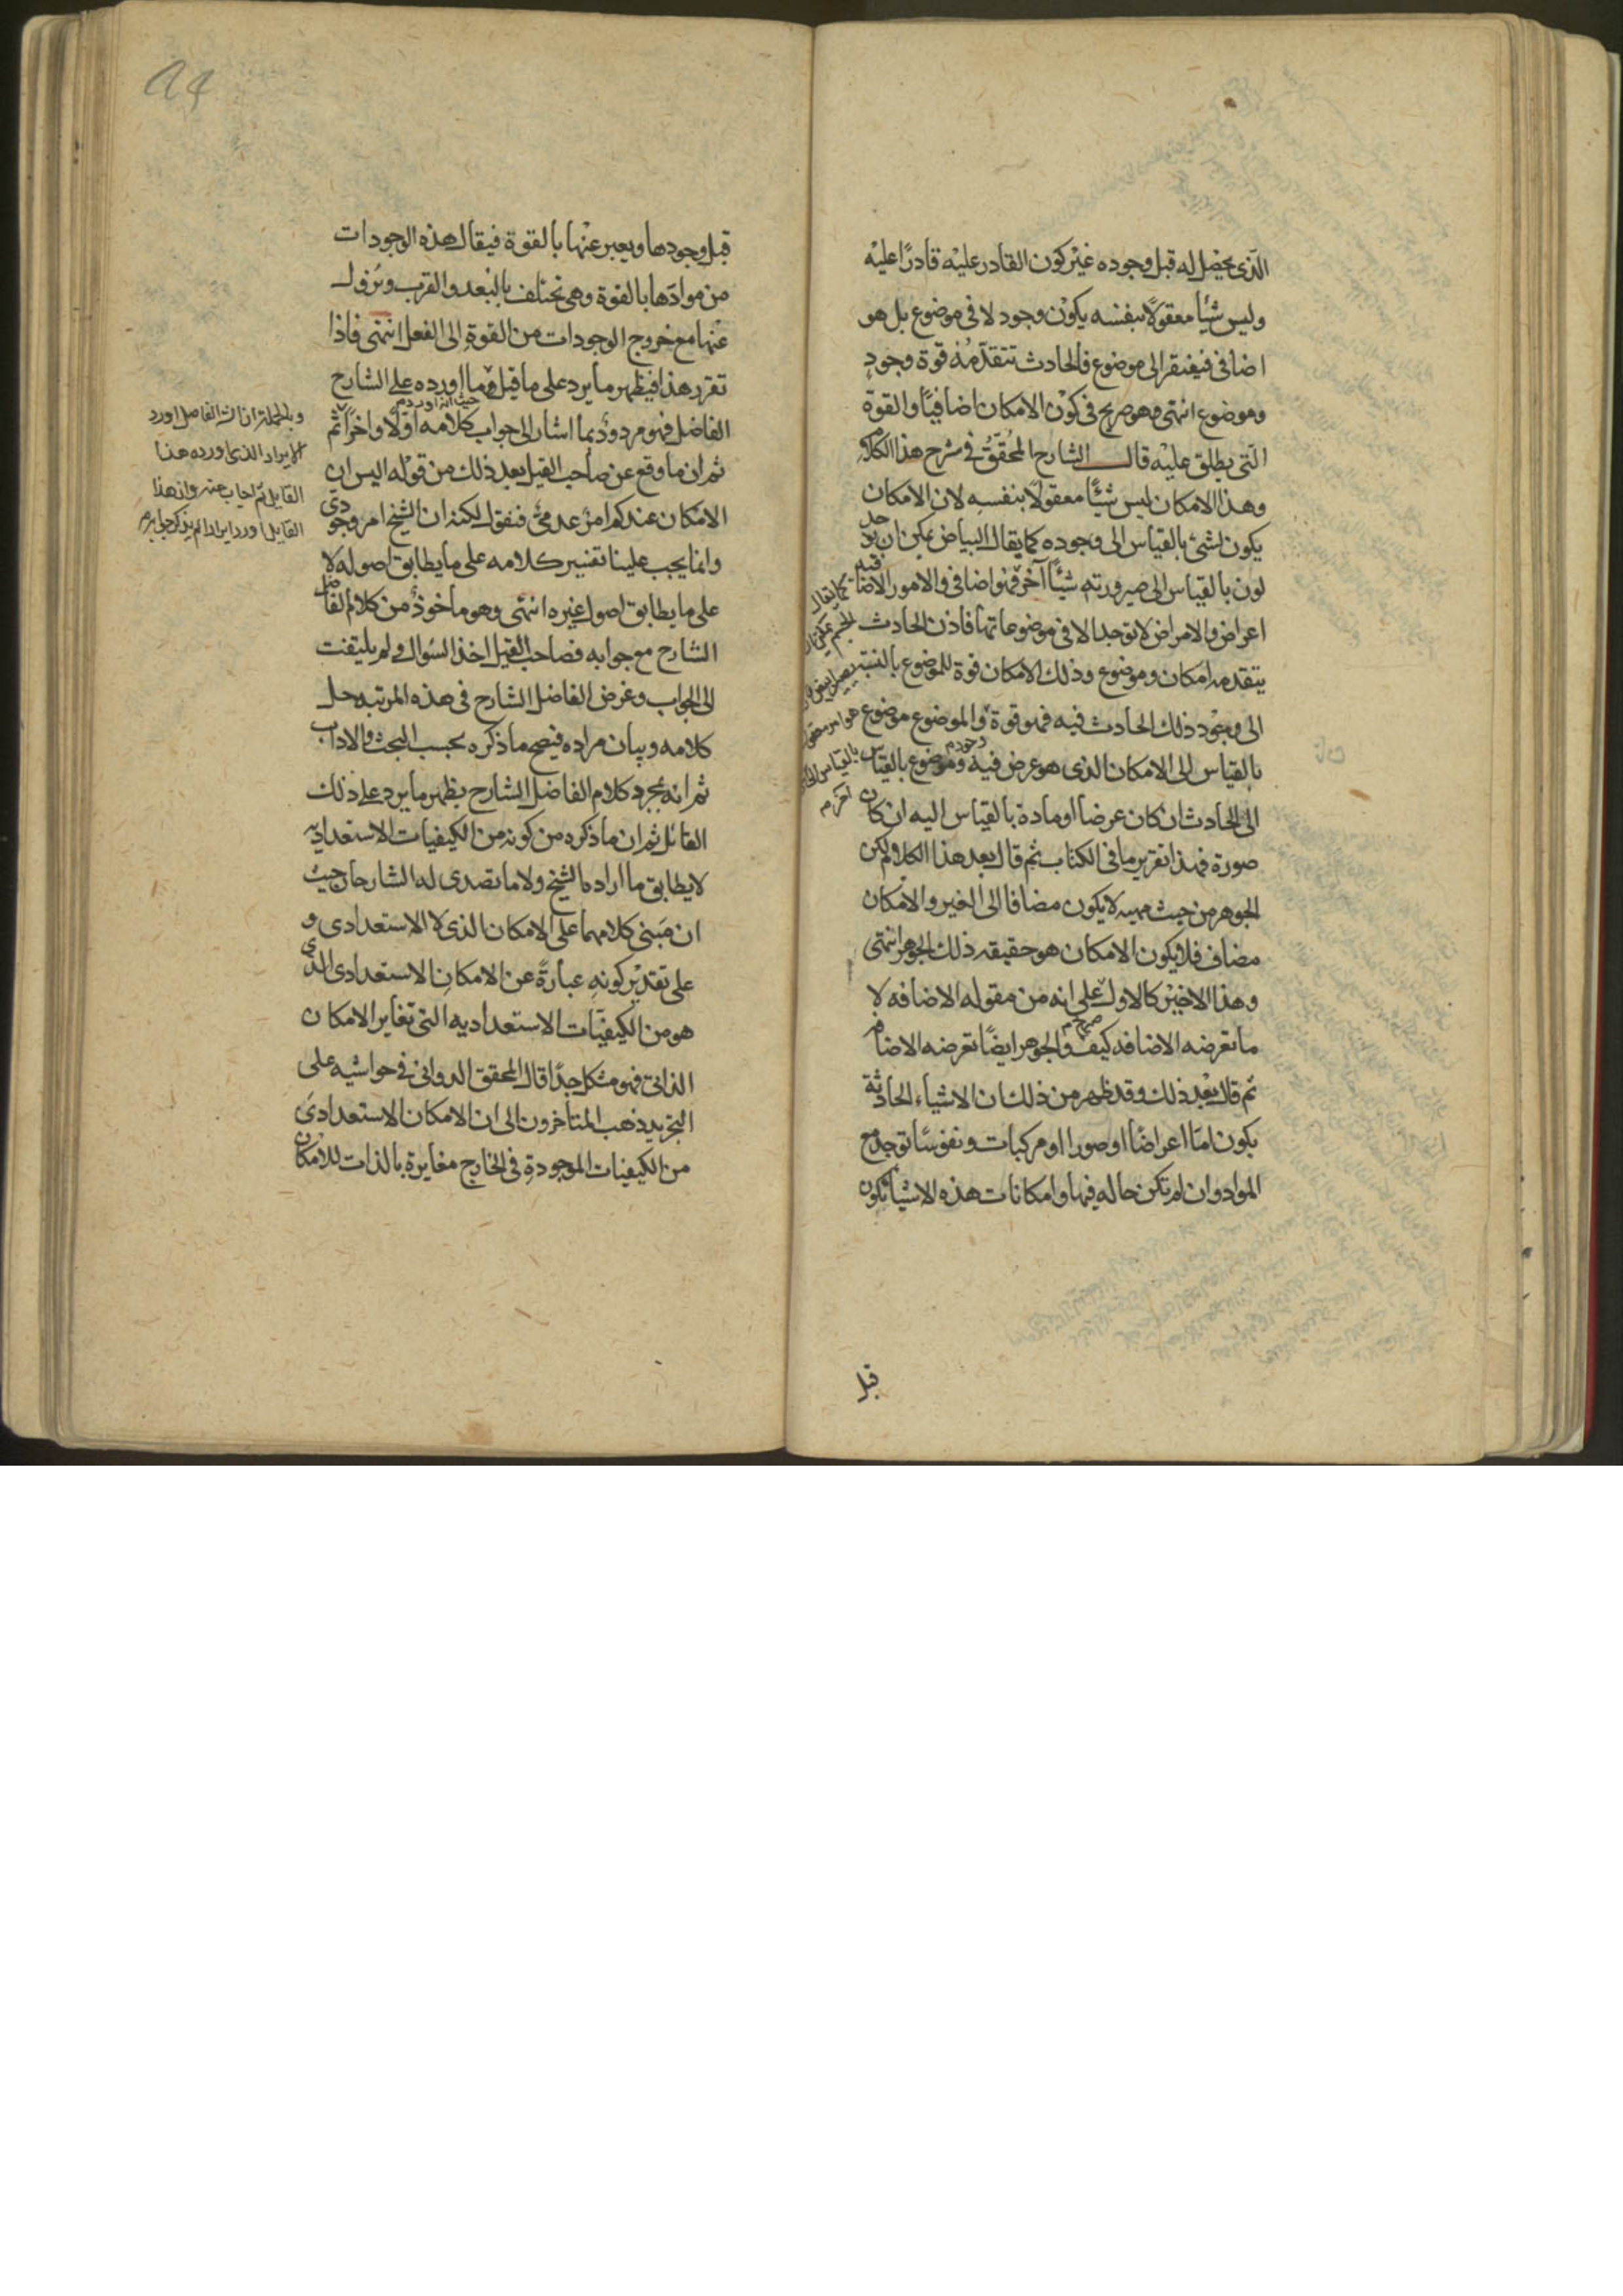 الذي يحصل له قبل وجوده غير كون القادر عليه قادرًا عليه
وليس شيأ معقولًا بنفسه يكون وجود لا في موضوع بل هو
اضافي فيفتقر الى موضوع فالحادث تتقدمُه قوة وجودٍ
وموضوع انتهى وهو صريح في كون الامكان اضافيًا والقوة
التي يطلق عليه قال الشارح المُحقق في شرح هذا الكلام
وهذا الامكان ليس شيًا معقولًا بنفسه لان الامكان
يكون لشئ بالقياس الى وجوده كما يقال البياض يمكن ان يوجد
لون بالقياس الى صيرورته شيئًا آخر فهو اضافي والامور الاضافية
اعراض والاعراض لا توجد الا في موضوعاتها فاذن الحادث
يتقدمه امكان وموضوع وذلك الامكان قوة للموضوع بالنسبة
الى وجود ذلك الحادث فيه فهو قوة والموضوع موضوع
بالقياس الى الامكان الذي هو عرض فيه وموضوع بالقياس
الى الحادث ان كان عرضا او مادة بالقياس اليه ان كان
صورة فهذا تقرير ما في الكتاب ثم قال بعد هذا الكلام ولكن
الجوهر من حيث مهيته لا يكون مضافا الى الغير والامكان
مضاف فلا يكون الامكان هو حقيقه ذلك الجوهر انتهى
وهذا الاخير كالاول على انه من مقوله الاضافه لا
ما تعرضه الاضافه كيف والجوهر ايضًا تعرضه الاضافه
ثم قال بعد ذلك وقد ظهر من ذلك ان الاشياء الحادثة
يكون امّا اعراضًا او صورا او مركبات ونفوسًا توجد مع
المواد وان لم تكن حاله فيها وامكانات هذه الاشيا تكون
كما يقال
الجسم يمكن ان
يصير ابيض
بالقياس الى
آخر م
قبل
قبل وجودها ويعبر عنها بالقوة فيقال هذه الوجودات
من موادّها بالقوة وهي تختلف بالبُعد والقرب وتزول
عنها مع خروج الوجودات من القوة الى الفعل انتهى فاذا
تقرر هذا فيظهر ما يرد على ما قيل وما اورده على الشارح
الفاضل فهو مردود بما اشار الى جواب كلامه اولًا واخرًا ثم
حيث انه اورد م
ثم ان ما وقع عن صاحب القيل بعد ذلك من قوله اليس ان
الامكان عندكم امرٌ عدميٌ فنقول لكنه ان الشيخ امر وجودي
وانما يجب علينا تفسير كلامه على ما يطابق اصوله لا
على ما يطابق اصول غيره انتهى وهو مأخوذٌ من كلام الفاضل
الشارح مع جوابه فصاحب القيل اخذ السؤال ولم يلتفت
الى الجواب وغرض الفاضل الشارح في هذه المرتبه حل
كلامه وبيان مراده فيصح ما ذكره بحسب البحث والاداب
ثم انه بمجرد كلام الفاضل الشارح يظهر ما يرد على ذلك
القائل ثم ان ما ذكره من كونه من الكيفيات الاستعداديه
لا يطابق ما اراده الشيخ ولا ما تصدى له الشارحان حيث
ان مبنى كلامهما على الامكان الذي لا الاستعدادي و
على تقدير كونهِ عبارةً عن الامكانِ الاستعدادى الذي
هو من الكيفيّات الاستعداديه التي تغاير الامكان
الذاتى فهو مشكل جدًا قال المحقق الدواني في حواشيه على
التجريد ذهب المتاخرون الى ان الامكان الاستعدادى
من الكيفيات الموجودةِ في الخارج مغايرة بالذات للامكان
وبالجملة ان الفاضل اورد
الايراد الذي اورده هذا
القايل ثم اجاب عنه وان هذا
القايل اورد ايرادا لم يذكر جوابه م